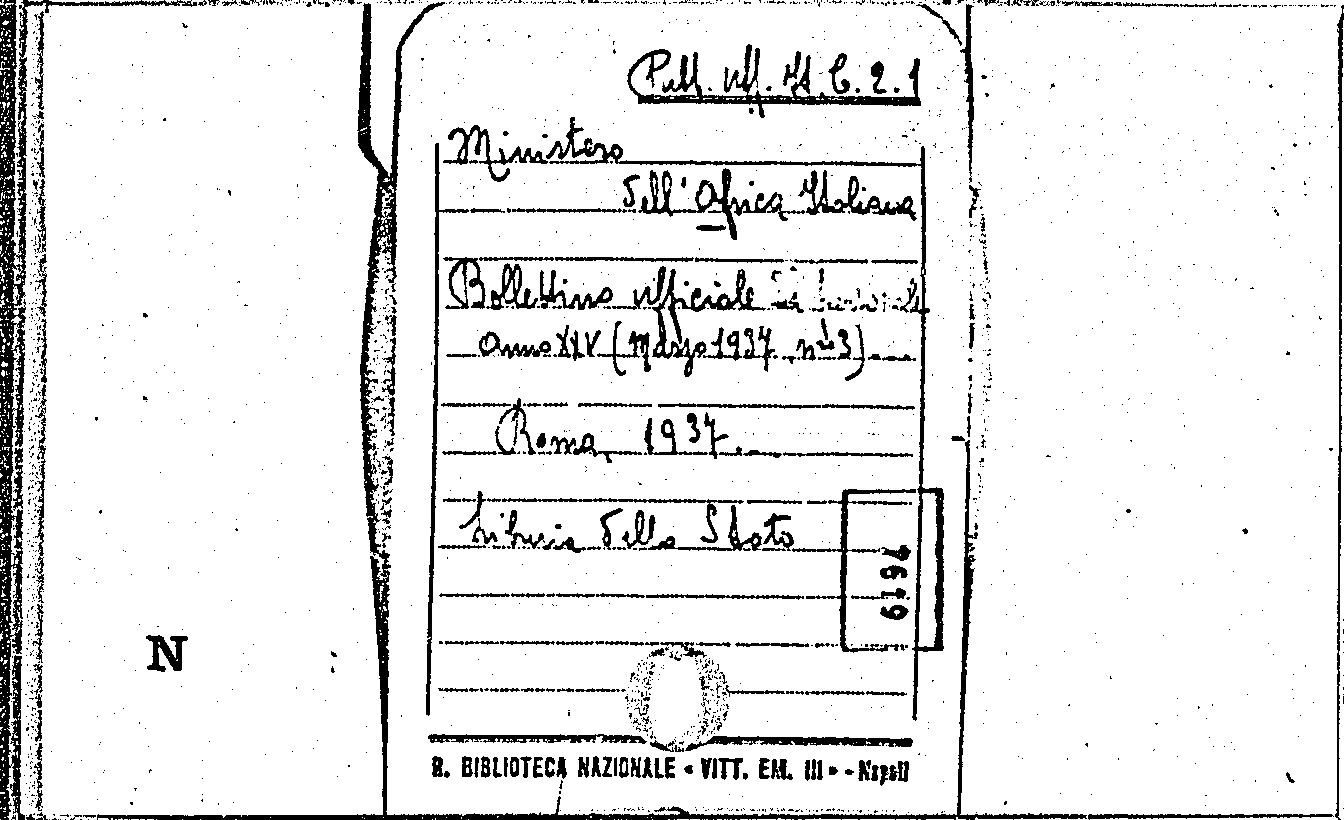 Pubb. Uff. It. C. 2. 1
Ministero
dell'Africa Italiana
Bollettino ufficiale
Anno XXV (Marzo 1937 nº 3)
Roma, 1937.
Libreria dello Stato
7619
N
R. BIBLIOTECA NAZIONALE « VITT. EM. III » - Napoli